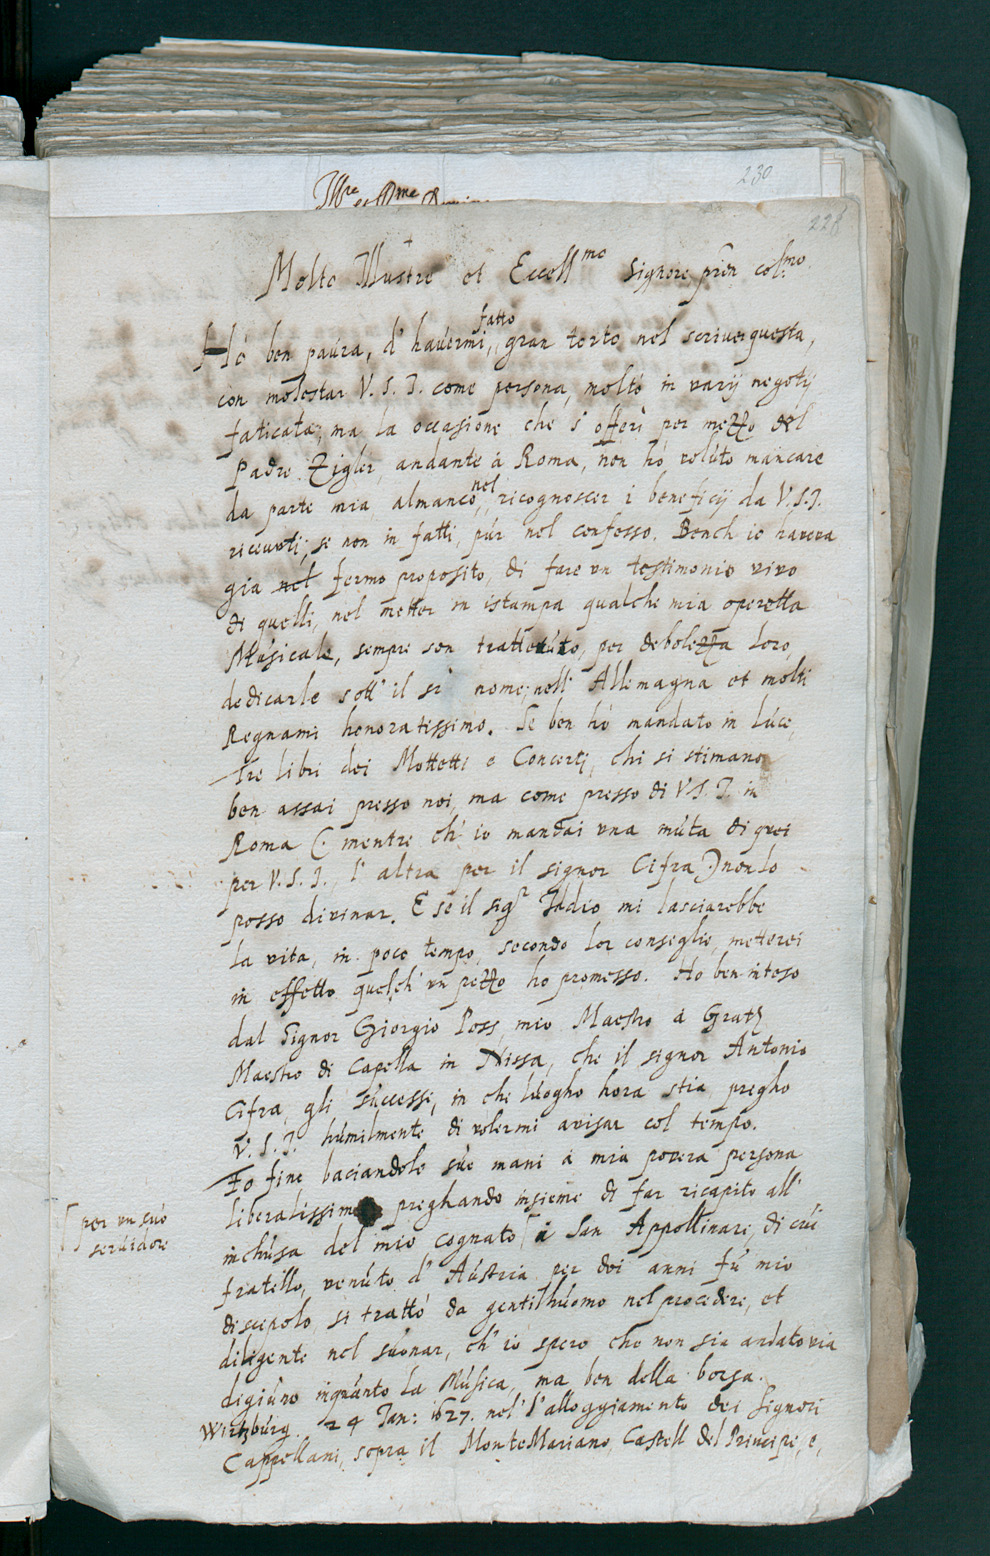 230
Illre et Rme
228
Molto Illustre et Eccell.mo Signore prõn col.mo
fatto
Hó ben paúra, d' havermi, gran torto nel scriver questa,
con molestar V. S. I. come persona, molto in varij negotij
faticata; ma la occasione che s' offerì per mezzo del
Padre Zigler, andante à Roma, non hó volúto mancare
nel
da parte mia almanco, ricognoscer i beneficij da V.S.I.
ricevuti; se non in fatti, púr nel confesso. Bench io haveva
gia nel fermo proposito, di fare un testimonio vivo
di quelli, nel metter in istampa qualche mia operetta
Músicale, sempre son trattenúto, per debolezza loro,
dedicarle sott' il si nome; nell' Allemagna et molti
Regnami honoratissimo. Se ben hó mandato in lúce,
Tre libri dei Mottetti e Concerti, chi si stimano
ben assai presso noi, ma come presso di V.S.I. in
Roma (: mentre ch' io mandai una múta di quei
per V. S. I., l' altra per il signor Cifra :) non lo
posso divinar. E se il sigr Iddio mi lasciarebbe
la vita, in poco tempo, secondo lor conseglio, metterei
in effetto quelch' un pezzo ho promesso. Ho ben inteso
dal Signor Giorgio Poss, mio Maestro à Gratz
Maestro di Capella in Nissa, che il signor Antonio
Cifra, gli súccesse, in che lúogho hora stia, pregho
V. S. I. húmilmente di volermi avisar col tempo.
Fo fine baciandole súe mani à mia povera persona
liberalissime preghando insieme di far ricapito all'
per un súo
servidore
inchúsa del mio cognato à San Appollinari, di cúi
fratello, venúto d' Aústria per doi anni fú mio
discepolo, si trattó da gentilhúomo nel procedere, et
diligente nel súonar, ch' io spero che non sia andato via
digiúno inqúanto la Música, ma ben della borsa.
Wirtzbúrg. 24 Jan: 1627. nel' l'alloggiamento dei Signori
Cappellani, sopra il Monte Mariano, Castell del Principe, e,